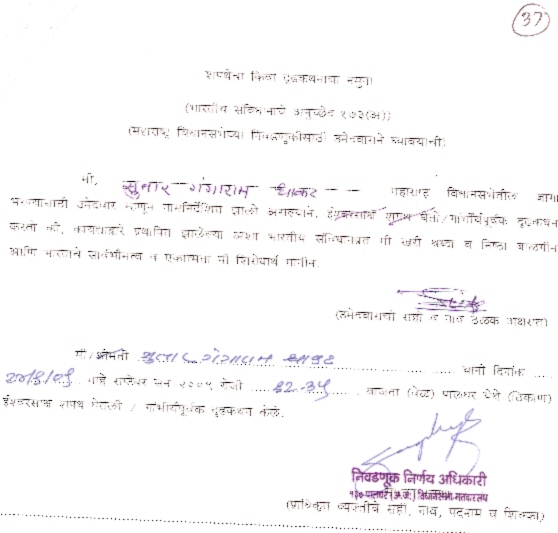 37
शपथेचा किंवा दृढकथनाचा नमुना
(भारतीय संविधानाचे अनुच्छेद १७३(अ))
(महाराष्ट्र विधानसभेच्या निवडणुकीसाठी उमेदवाराने घ्यावयाची)
मी, सुतार गंगाराम -- महाराष्ट्र विधानसभेतील जागा
भरण्यासाठी उमेदवार म्हणून नामनिर्देशित झालो असल्याने, ईश्वरसाक्ष शपथ घेतो/गांभीर्यपूर्वक दृढकथन
करतो की, कायद्याद्वारे प्रस्थापित झालेल्या अशा भारतीय संविधानाप्रत मी खरी श्रध्दा व निष्ठा बाळगीन
आणि भारताचे सार्वभौमत्व व एकात्मता मी शिरोधार्य मानीन.
(उमेदवाराची सही व नाव ठळक अक्षरात)
श्री/श्रीमती सुतार गंगाराम यांनी दिनांक
रोजी वाजता (वेळ) पालघर येथे (ठिकाण)
ईश्वरसाक्ष शपथ घेतली / गांभीर्यपूर्वक दृढकथन केले.
निवडणूक निर्णय अधिकारी
१३० पालघर (अ.ज.) विधानसभा मतदारसंघ
(प्राधिकृत व्यक्तीचे सही, नाव, पदनाम व शिक्का)